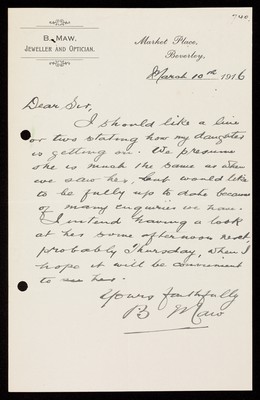 740
B. MAW,
JEWELLER AND OPTICIAN.
Market Place,
Beverley,
March 10th 1916
Dear Sir,
I should like a line
or two stating how my daughter
is getting on. We presume
she is much the same as when
we saw her, but would like
to be fully up to date because
of many enquiries we have.
I intend having a look
at her some afternoon next,
probably Thursday, when I
hope it will be convenient
to see her.
Yours faithfully
B Maw